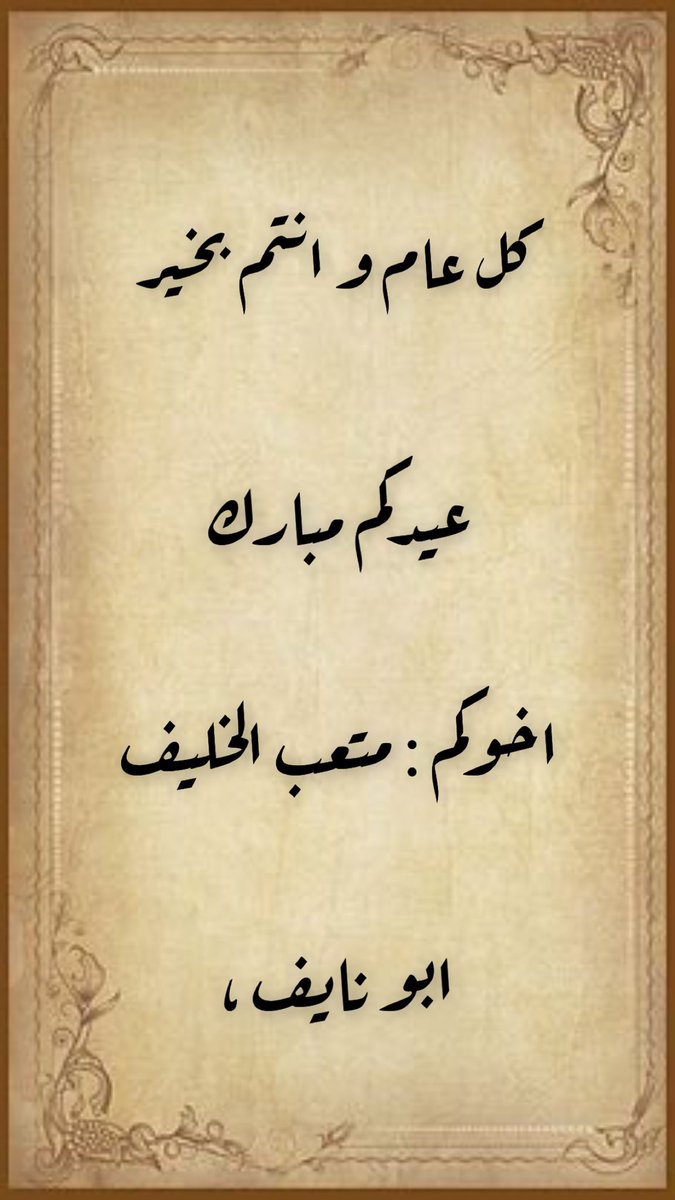 كل عام و انتم بخير
عيدكم مبارك
اخوكم : متعب الخليف
ابو نايف ،